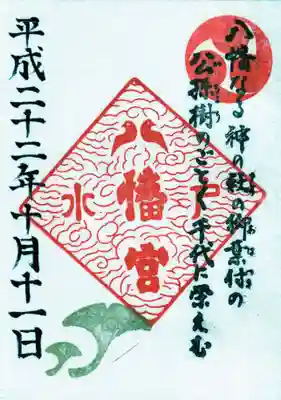 八幡なる神の社の御葉付の
公孫樹のごとく千代に栄えむ
水戸
八幡宮
平成二十二年十月十一日